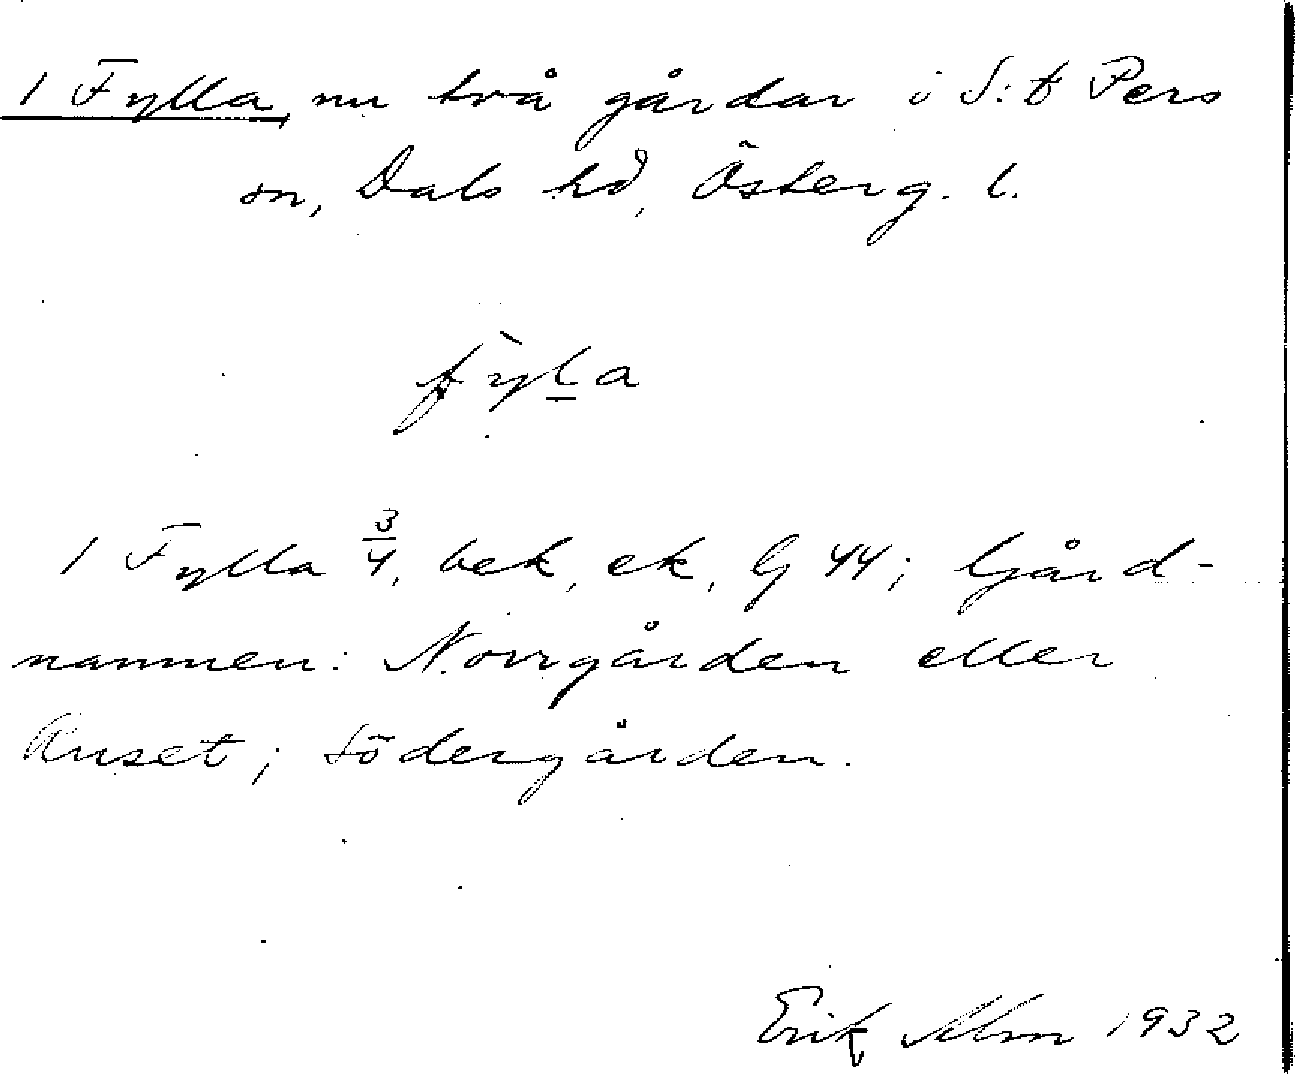 1 Fylla, nu två gårdar i S:t Pers
sn, Dals hd, Österg. l.
fỳla
1 Fylla 3/4, bek, ek, Gj 44; Gård-
namnen: Norrgården eller
Ruset; Södergården.
Erik Alm 1932